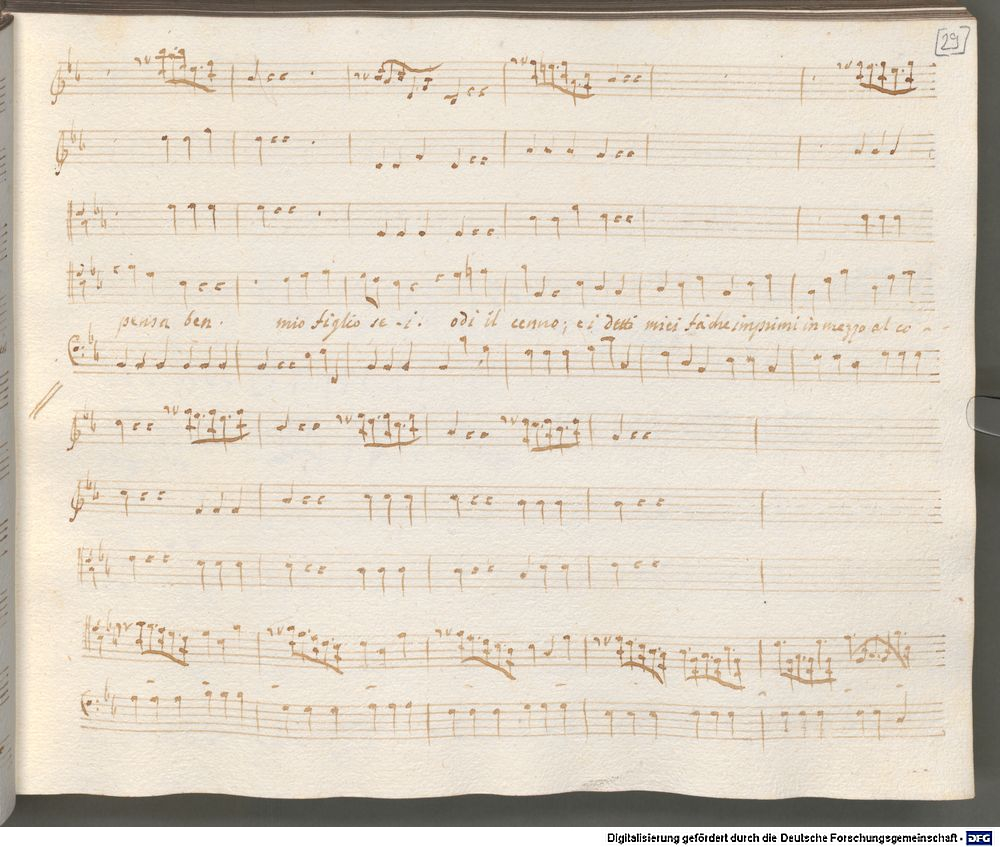 29
pensa ben. mio figlio se-i. odi il cenno; e i detti miei fà che imprimi in mezzo al co - -
Digitalisierung gefördert durch die Deutsche Forschungsgemeinschaft - DFG